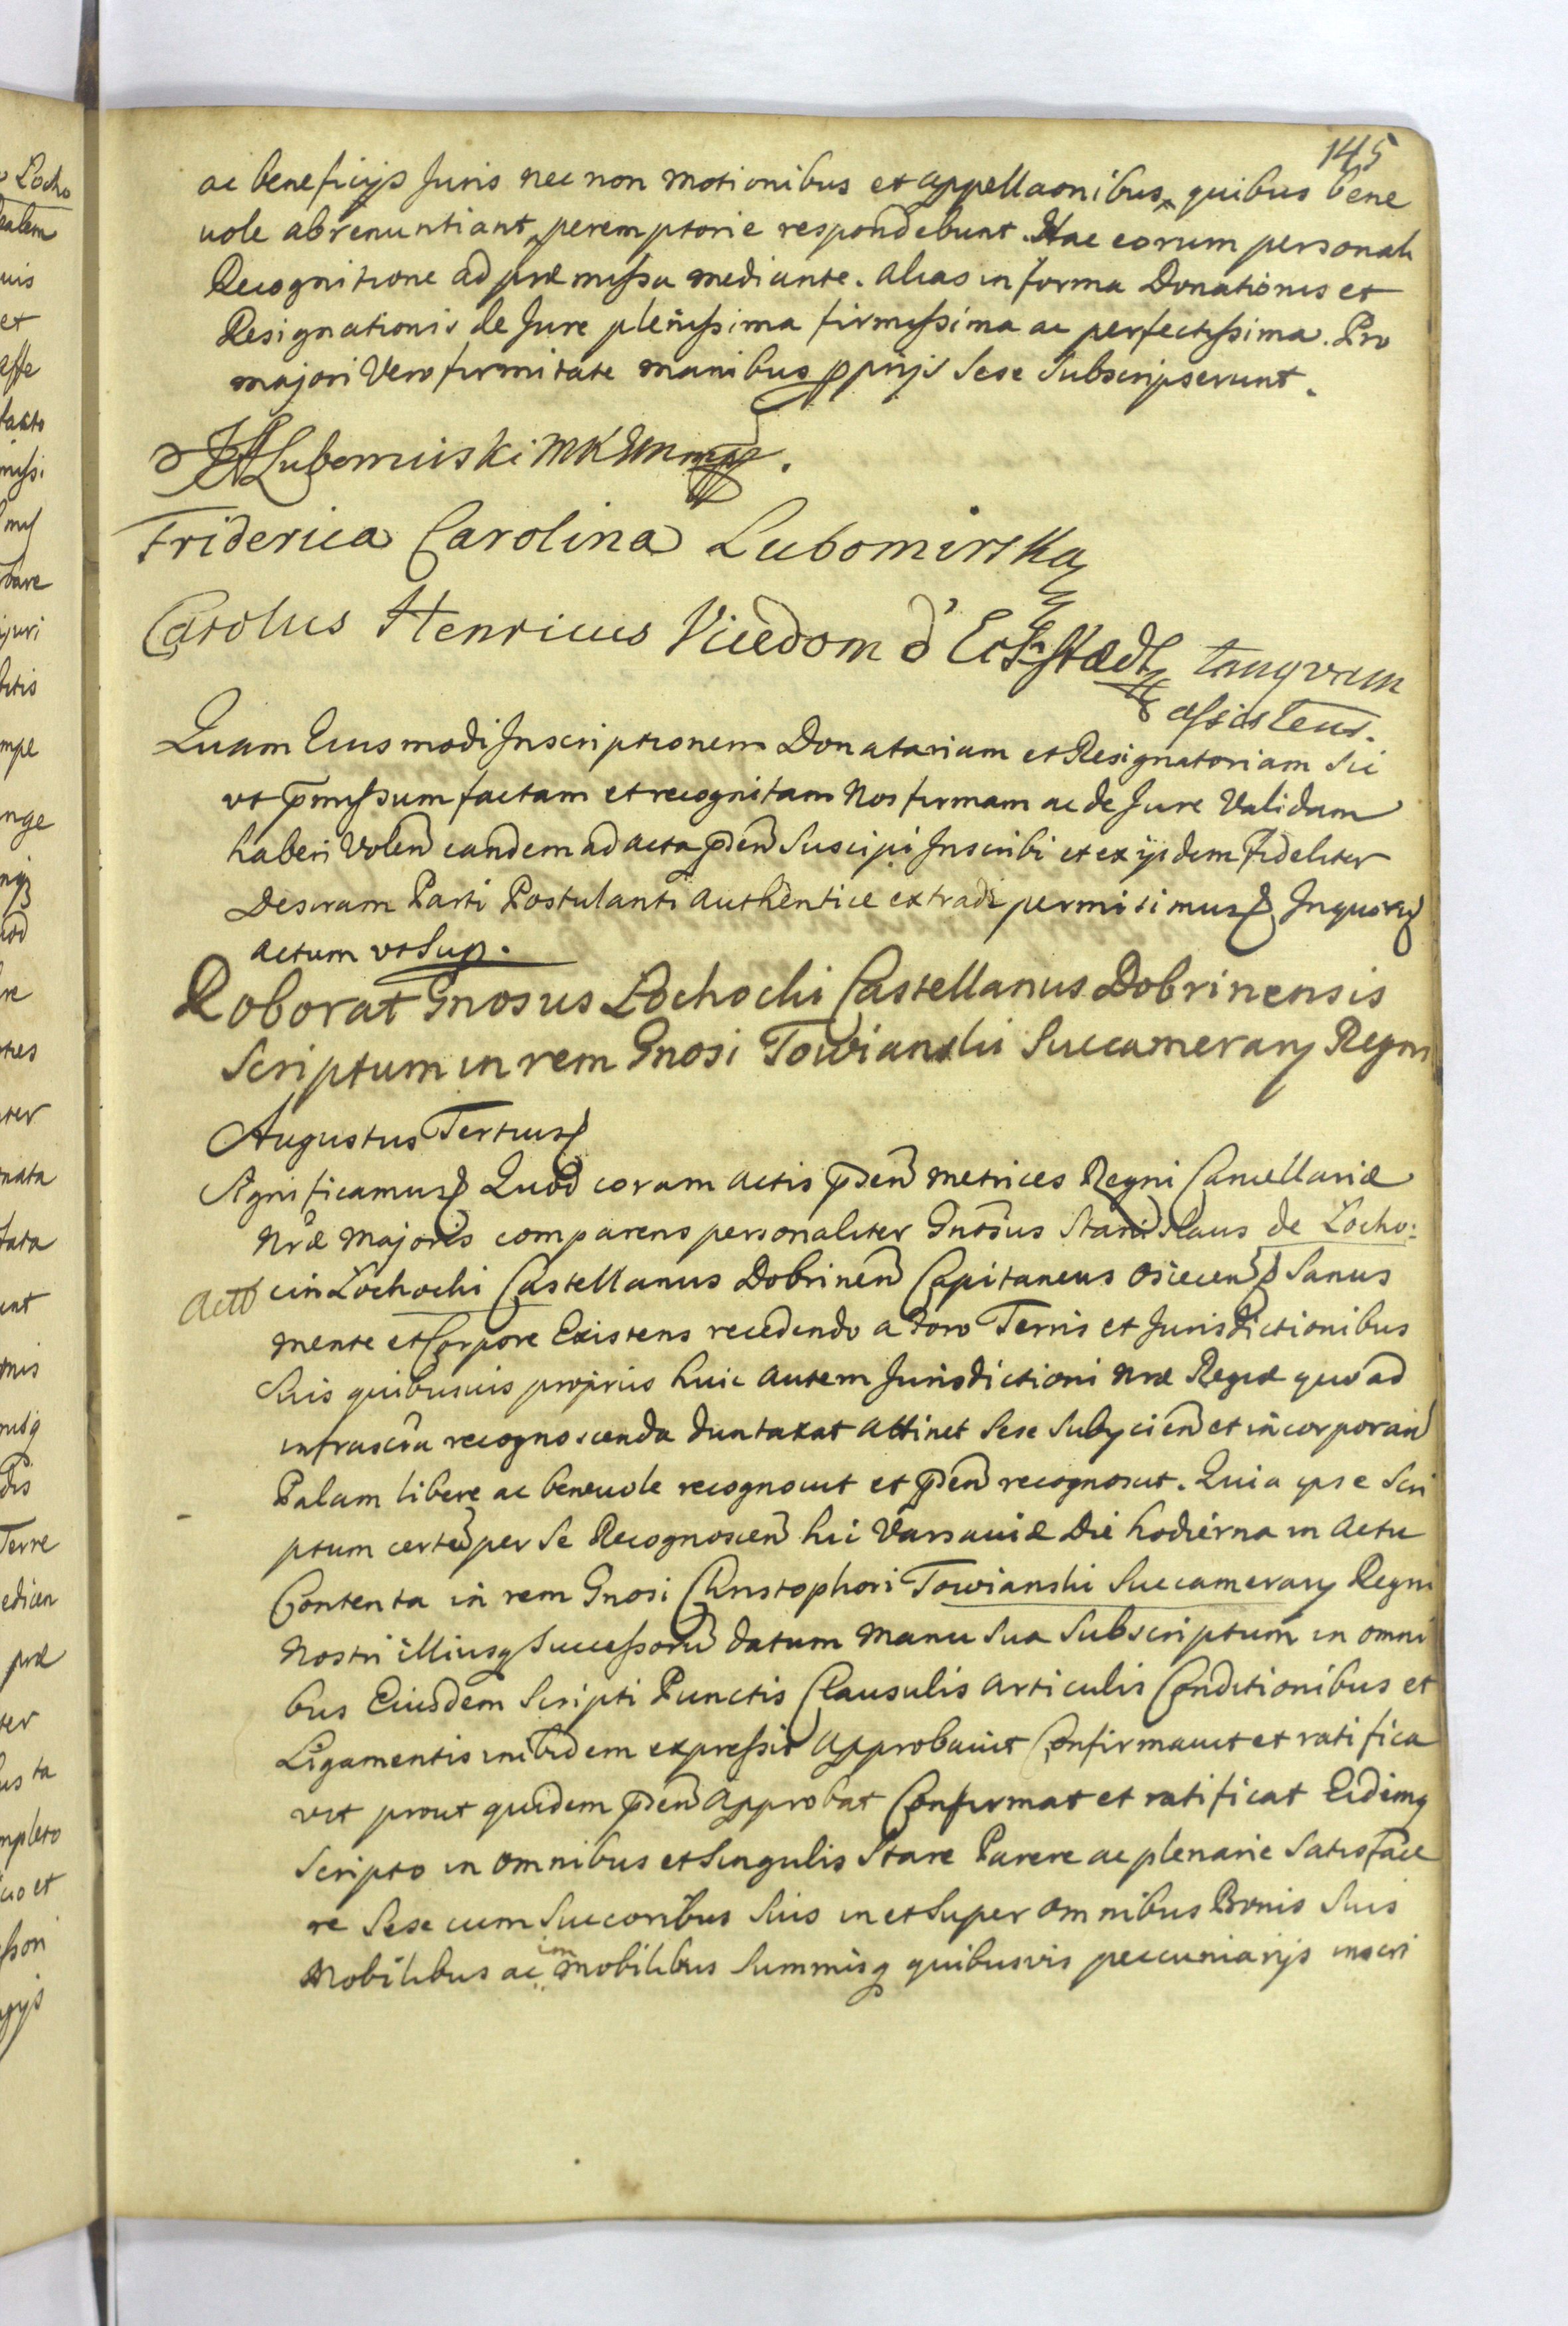 145
ac beneficijs Juris nec non motionibus et appellaonibus, quibus bene
uole abrenuntiant, peremptorie respondebunt. Hac eorum personali
Recognitione ad præmissa mediante. alias in forma Donationis et
Resignationis de Jure plenissima firmissima ac perfectissima. Pro
majori Vero firmitate manibus pprijs Sese Subscripserunt.
Lubomirski MKWK mpp.
Friderica Carolina Lubomirska
Carolus Henricus Vicedom d'Eckstædt tanqvam
assistens.
Quam Eiusmodi Inscriptionem Donatariam et Resignatoriam Sic
vt pmissum factam et recognitam Nos firmam ac de Jure Validam
haberi Volen eandem ad acta pden Suscipi Inscribi et ex ijsdem fideliter
Descram Parti Postulanti Authentice extradi permisimus Inquorq
actum vt Sup.
Roborat Gnosus Lochocki Castellanus Dobrinensis
Scriptum in rem Gnosi Towianski Succamerary Regni
Augustus Tertius
Significamus Quod coram actis pden metrices Regni Cancellariæ
Nræ Majoris comparens personaliter Gnosus Stanislaus de Locho:
Actt cin Lochocki Castellanus Dobrinen Capitaneus Osiecen Sanus
mente et Corpore Existens recedendo a Foro Terris et Jurisdictionibus
Suis quibusuis proprius huic autem Jurisdictioni Nræ Regiæ quoad
infrascra recognoscenda duntaxat attinet Sese Subyicien et incorporan
Palam libere ac beneuole recognouit et pden recognoscit. Quia ipse Scri
ptum certu per Se Recognoscen hic Varsauiæ Die hodierna in Actu
Contenta in rem Gnosi Christophori Towianski Succamerary Regni
Nostri illiusq Successoru datum manu Sua Subscriptum in omni
bus Eiusdem Scripti Punctis Clausulis articulis Conditionibus et
Ligamentis inibidem expressis approbauit Confirmauit et ratifica
vit prout quidem pden approbat Confirmat et ratificat Eidemq
Scripto in omnibus et Singulis Stare Parere ac plenarie Satisface
re Sese cum Succoribus Suis in et Super omnibus Bonis Suis
Mobilibus ac immobilibus Summisq quibusvis peccuniarijs inscri